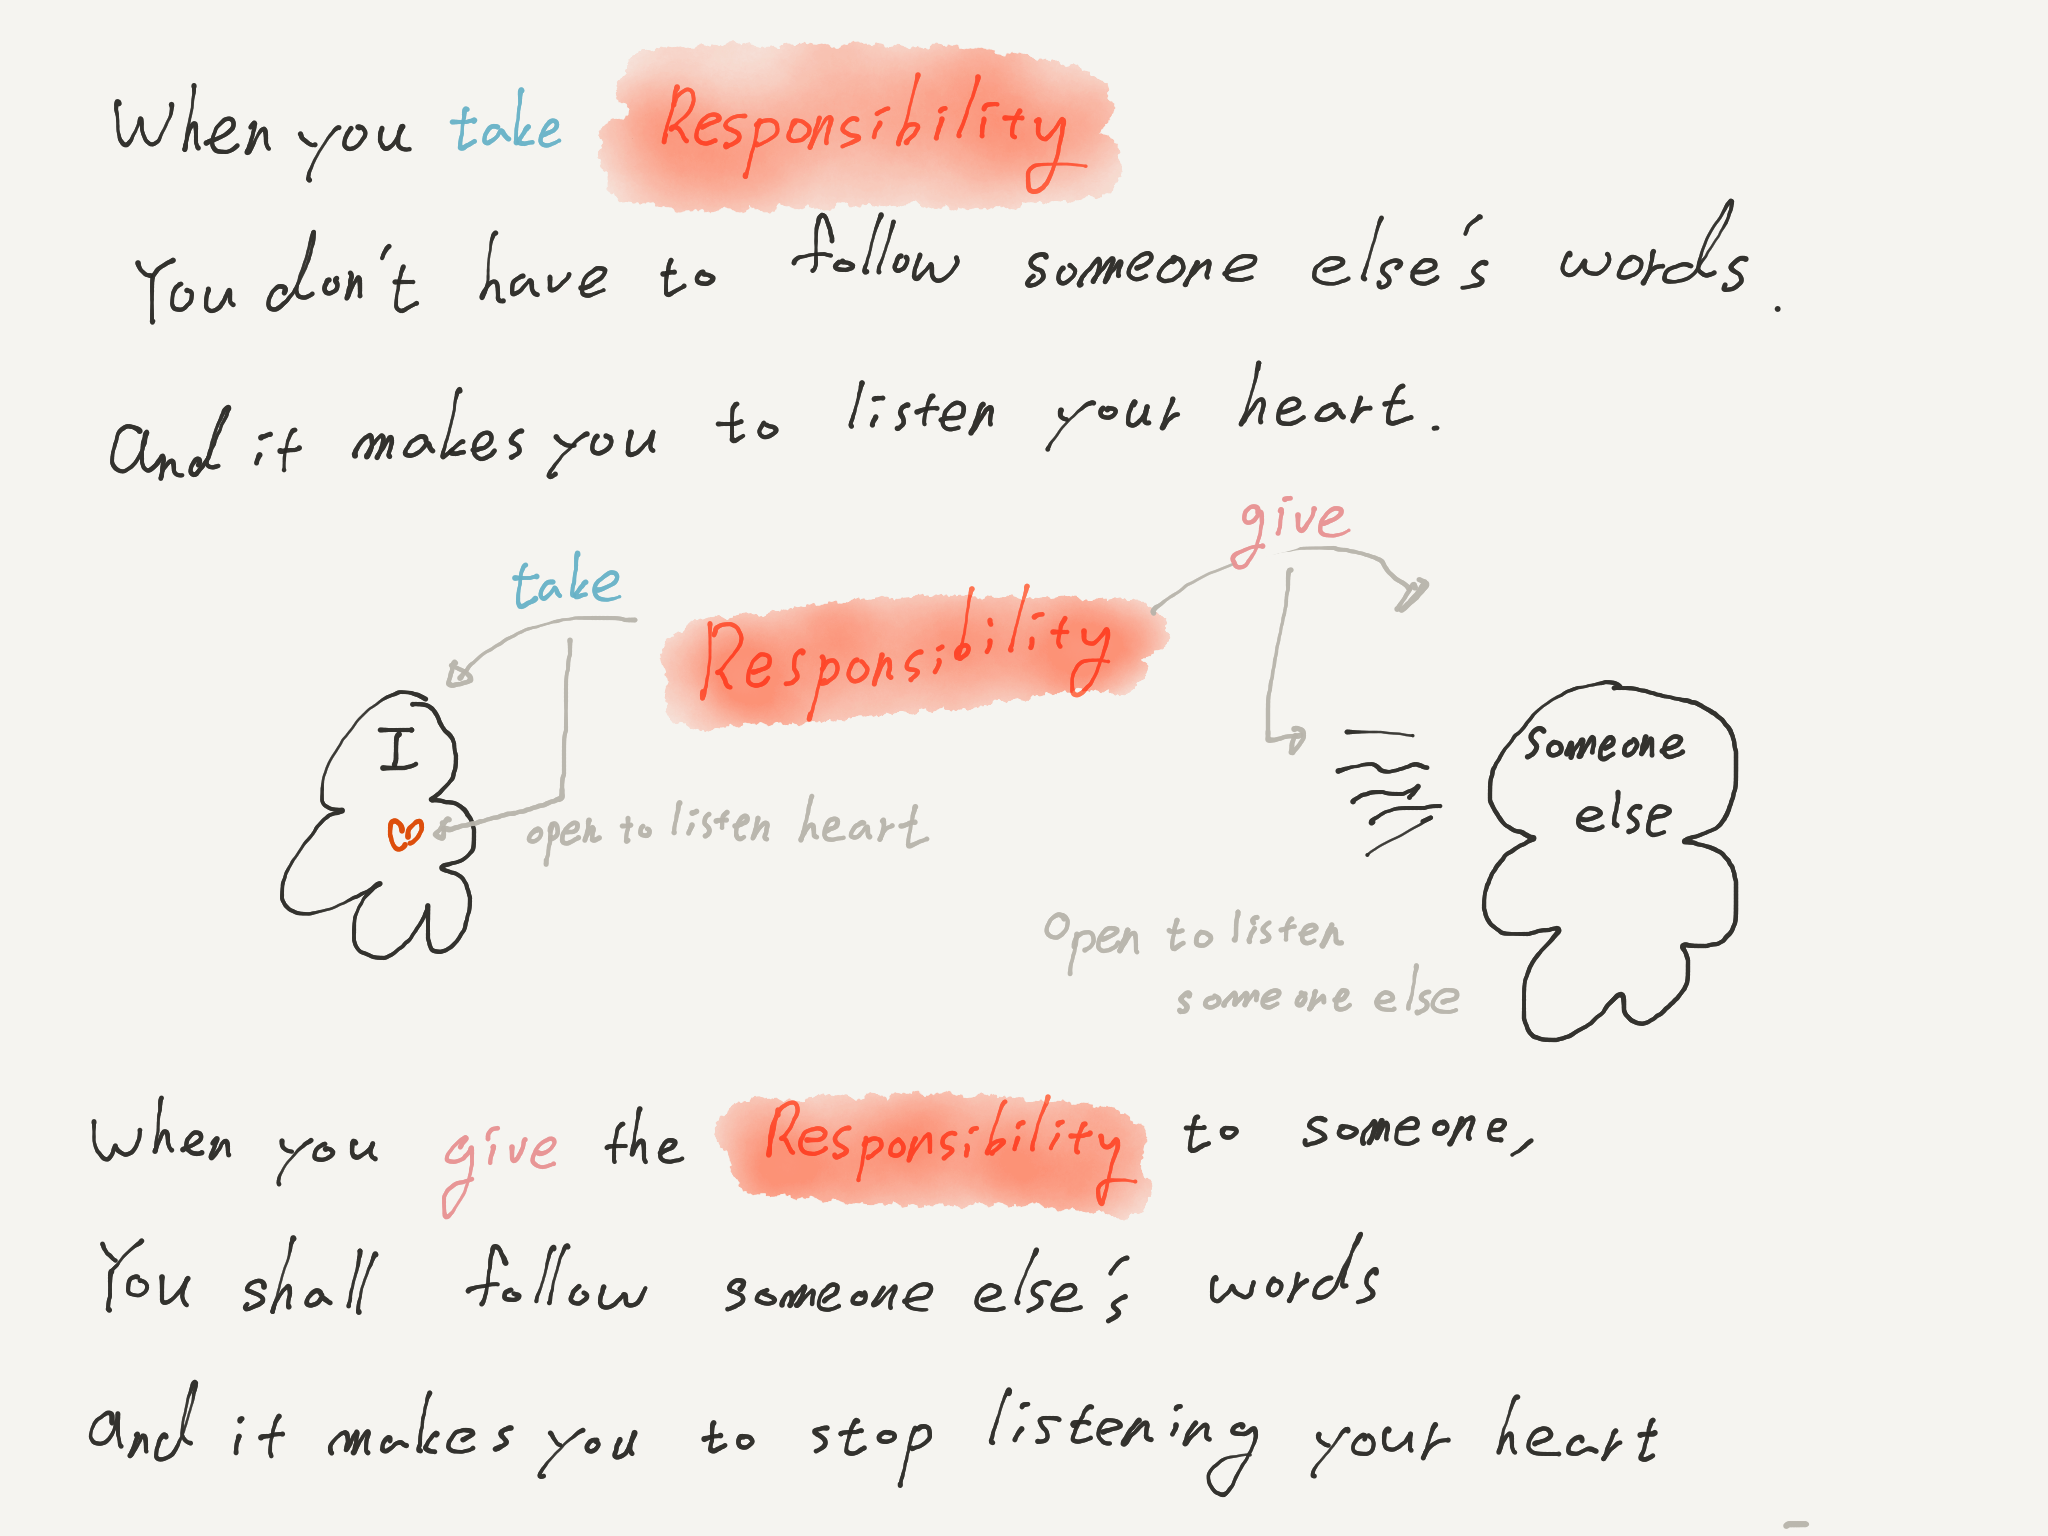 When you take Responsibility
You don't have to follow someone else's words.
And it makes you to listen your heart.
give
take
Responsibility
I
someone
else
open to listen heart
Open to listen
someone else
When you give the Responsibility to someone,
You shall follow someone else's words
And it makes you to stop listening your heart